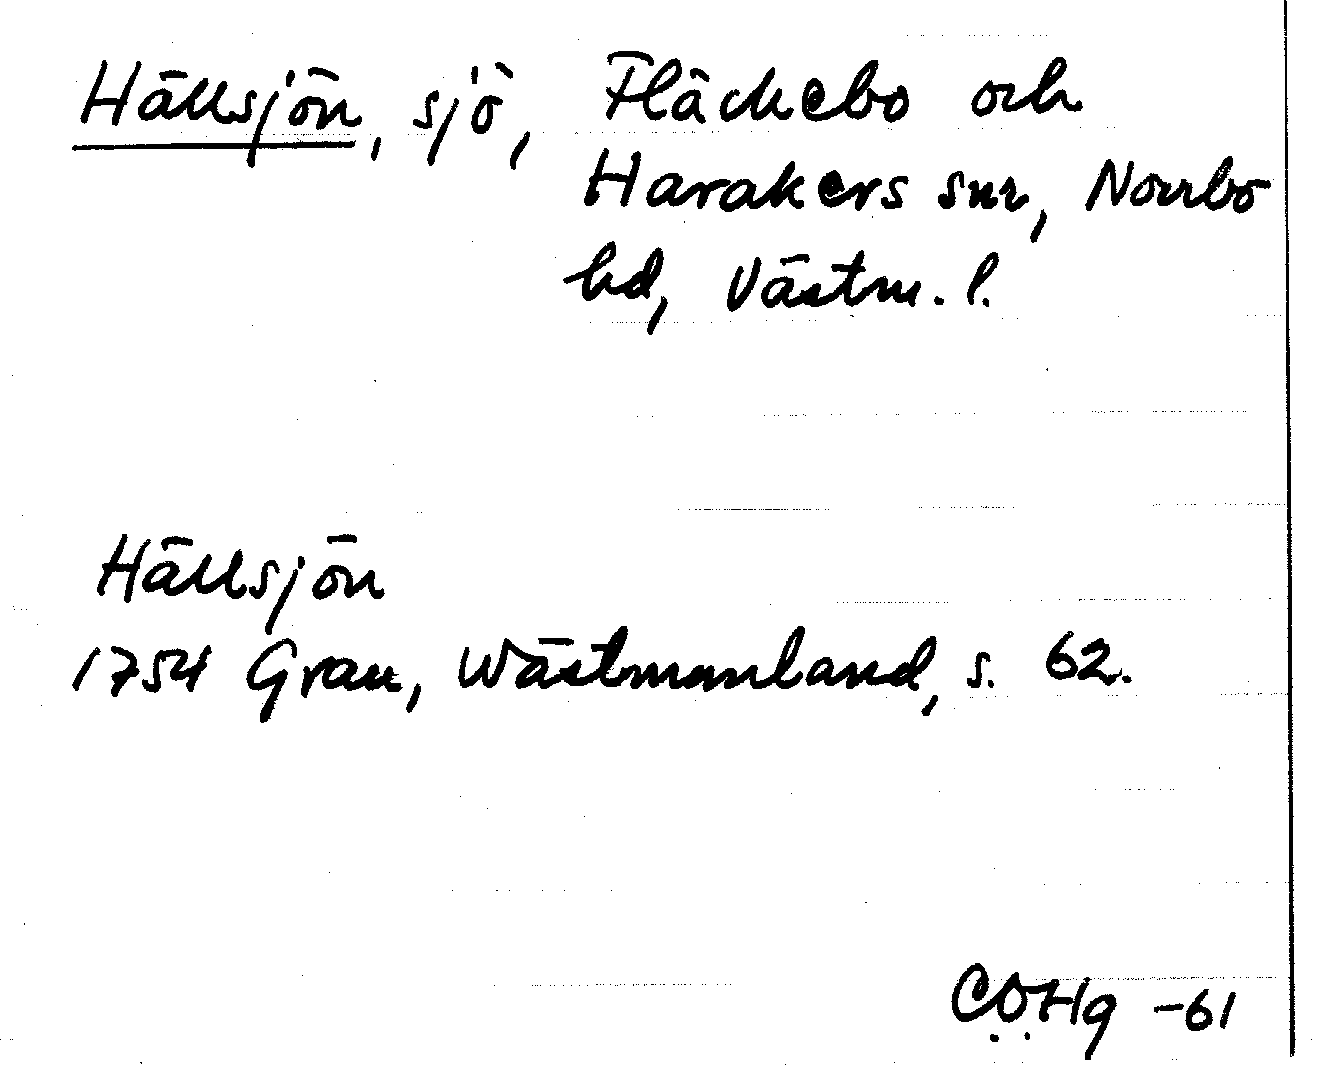 Hällsjön, sjö, Fläckebo och
Harakers snr, Norrbo
hd, Västm. l.
Hällsjön
1754 Grau, Wästmanland, s. 62.
CÖHg -61